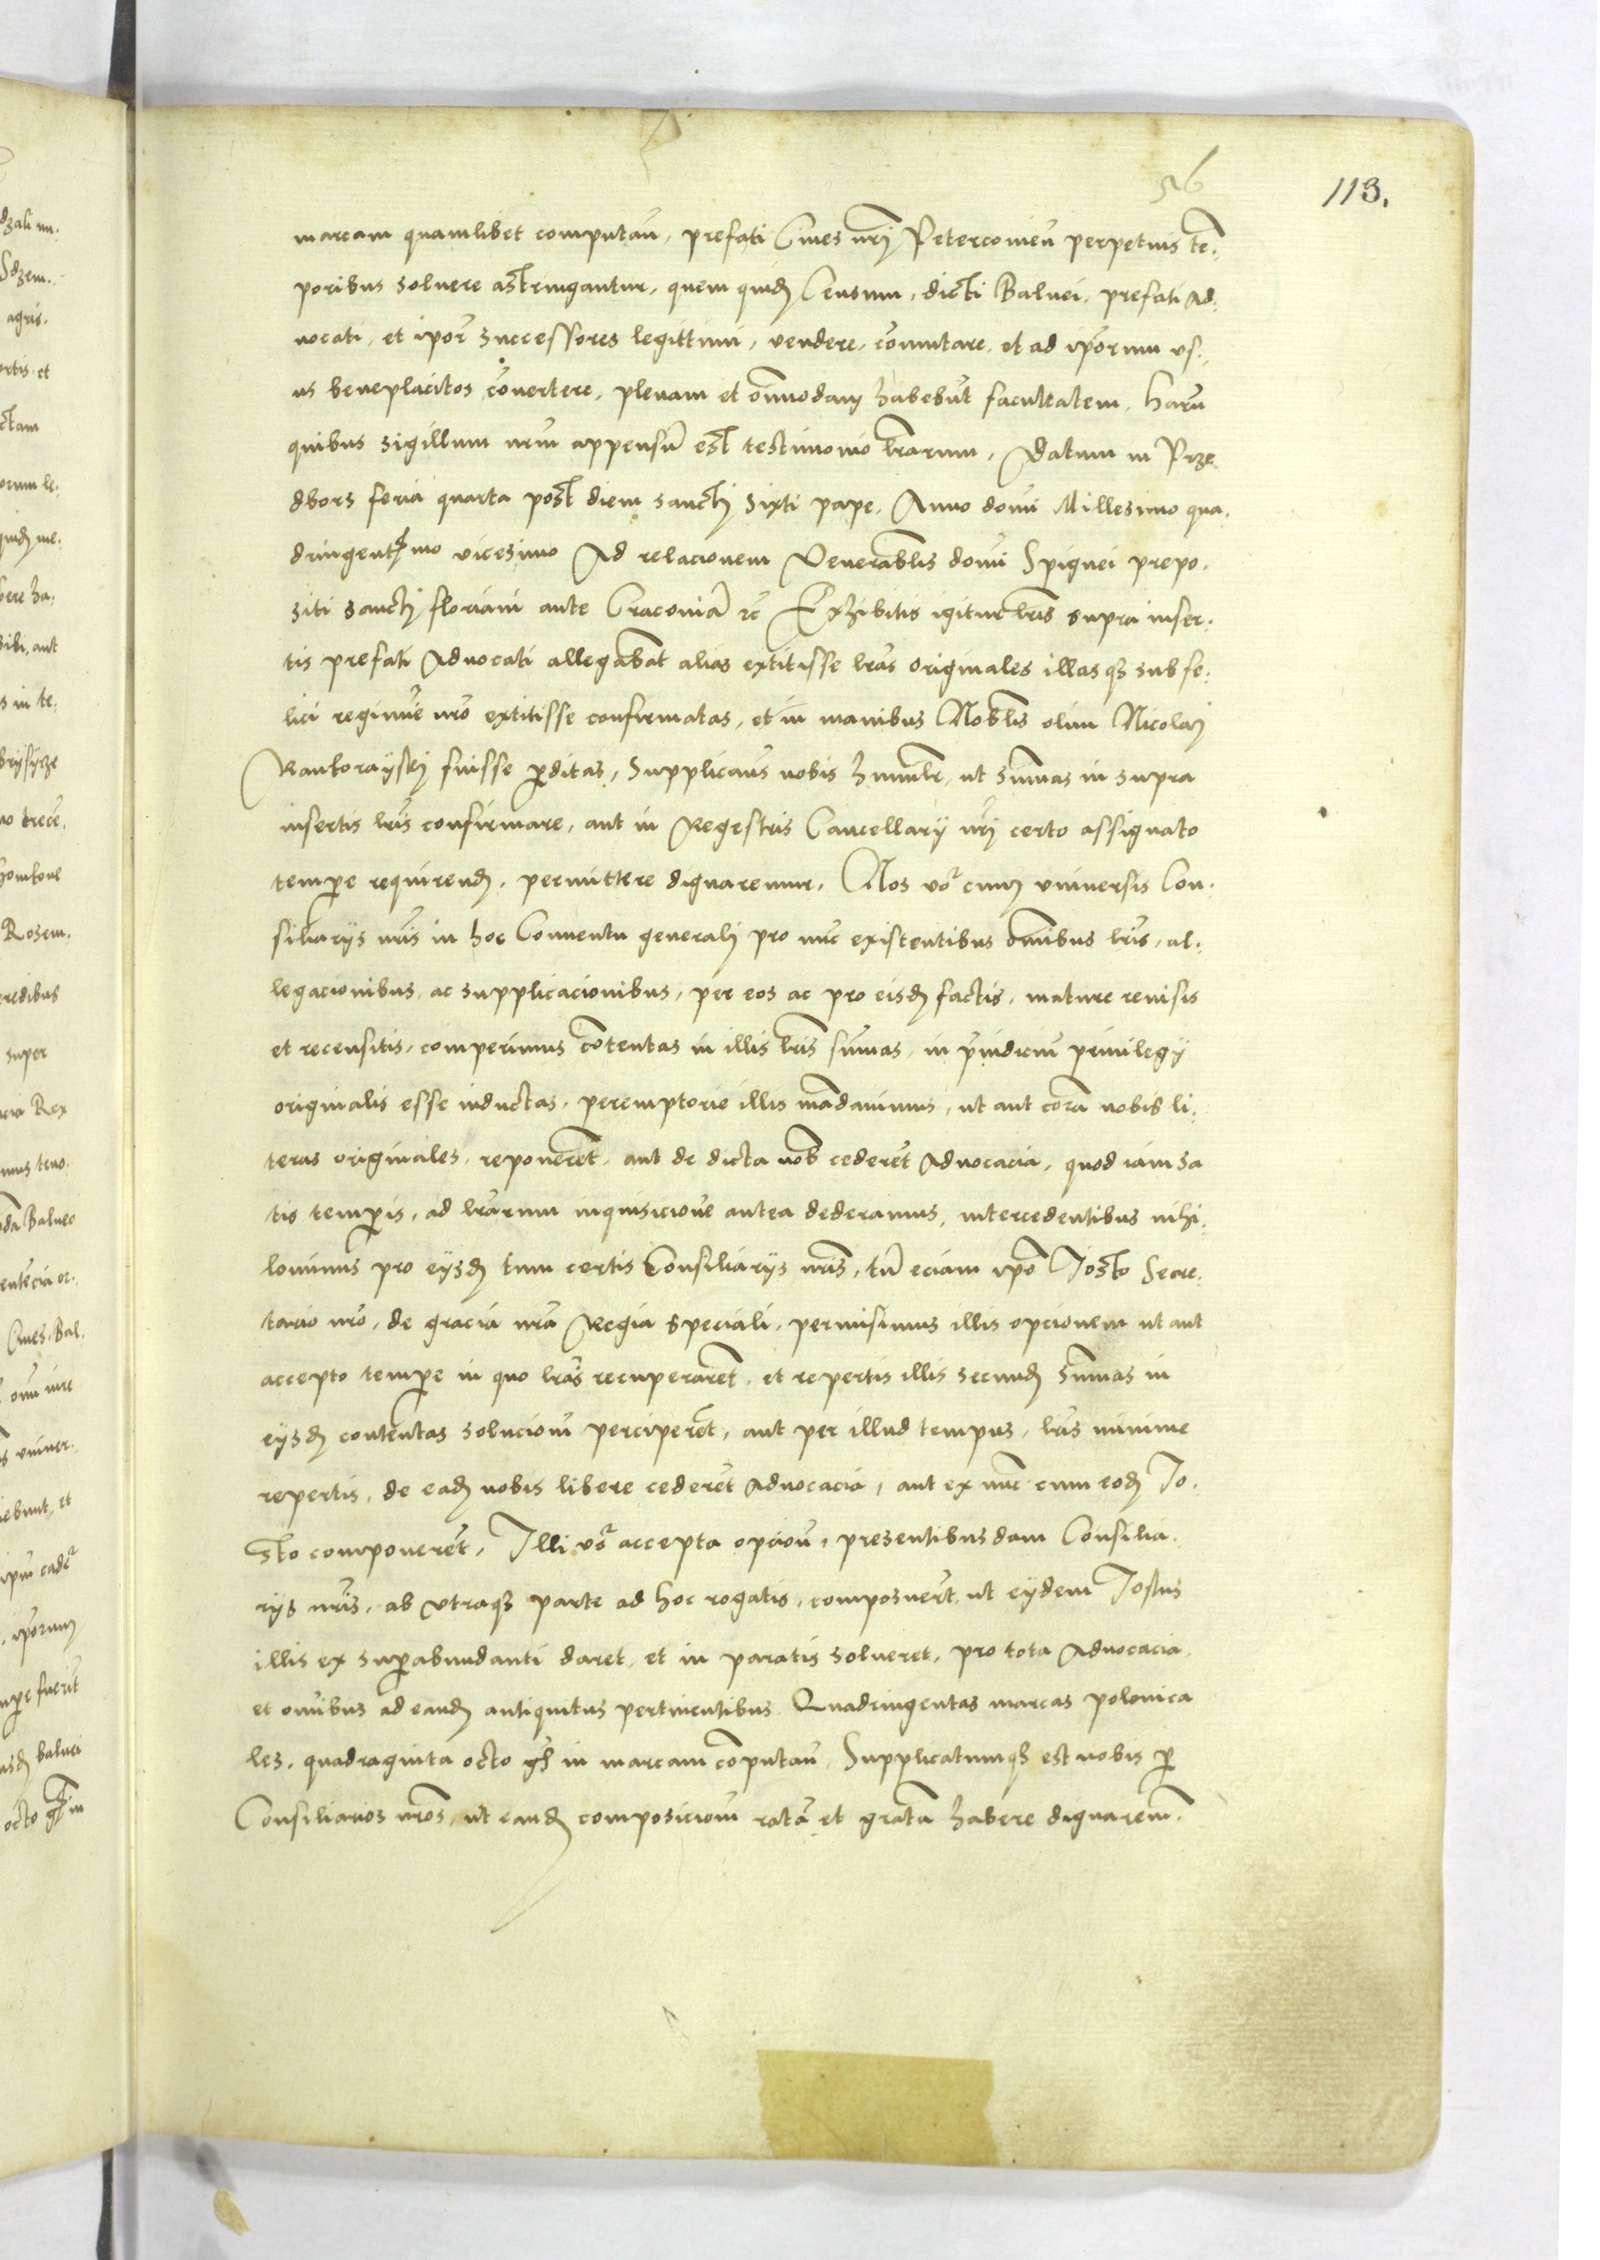 56
113.
marcam quamlibet computan̄, prefati Ciues nr̄j Petercouien̄ perpetuis te͞:
poribus soluere astringantur, quem quid͡ Censum, dicti Balnei, prefati Ad:
uocati, et ipor̄ successores legittimi, vendere, co͞mutare, et ad ipo͞rum vs:
us beneplacitos, co͞uertere, plenam et om͞imodam habebu͞t facultatem, Haru͞
quibus sigillum nr̄m appensu͞ est testimonio lr̄arum, Datum in Prze
dbors feria quarta post diem sanctj Sixti pape, Anno domi Millesimo qua.
dringentesimo vicesimo Ad relacionem Venerabl̄is domi Spignei prepo.
siti sanctj floriani ante Cracouia͞ rc̄ Exhibitis igitur lr̄is supra inser.
tis prefati Aduocati allegaba͞t alias extitisse lr̄as originales illasq͡ sub fe:
lici regimi͞e nr̄o extitisse confirmatas, et in manibus Nobl̄is olim Nicolaj
fuisse p̄ditas, Supplicaru͞t nobis humilr̄, ut su͞mas in supra
insertis lr̄is confirmare, aut in Regestris Cancellarij nr̄j certo assignato
temp̄e requirend͡, permittere dignaremur, Nos vo͞ cum vniuersis Con.
siliarijs nr̄is in hoc Conuentu generalj pro nu͞c existentibus om͞ibus lr̄is, al.
legacionibus ac supplicacionibus, per eos ac pro eisd͡ factis, mature reuisis
et recensitis, comperimus co͞tentas in illis lr̄is su͞mas, in p̄iudiciu͞ priuilegij
originalis esse inductas, peremptorie illis ma͞dauimus, ut aut cora͞ nobis li.
teras originales, reponere͞t, aut de dicta nob̄ cedere͞t Aduocacia, quod iam sa
tis temp̄is, ad lr̄arum inquisicione͞ antea dederamus, intercedentibus nihi.
lominus pro eijsd͡ tum certis Consiliarijs nr̄is, tu͞ eciam ip̄o Josto Secre.
tario nr̄o, de gracia nr̄a Regia speciali, permisimus illis opcionem ut aut
accepto temp̄e in quo lr̄as recuperare͞t, et repertis illis secund͡ su͞mas in
eijsd͡ contentas soluciom̄ percipere͞t, aut per illud tempus, lr̄is minime
repertis, de ead͡ nobis libere cedere͞t Aduocacia, aut ex nu͞c cum eod͡ Jo.
sto componere͞t, Illi vo͞ accepta opciom̄, presentibusdam Consilia.
rijs nr̄is, ab vtraq͡ parte ad hoc rogatis, composueru͞t, ut eijdem Jostus
illis ex sup̄abundanti daret, et in paratis solueret, pro tota Aduocacia.
et om͞ibus ad eand͡ antiquitus pertinentibus Quadringentas marcas polonica
les, quadraginta octo gr̄ in marcam co͞putan̄, Supplicatumq͡ est nobis p̄
Consiliarios nr̄os, ut eand͡ composiciom̄ rata͞ et grata͞ habere dignarem̄.